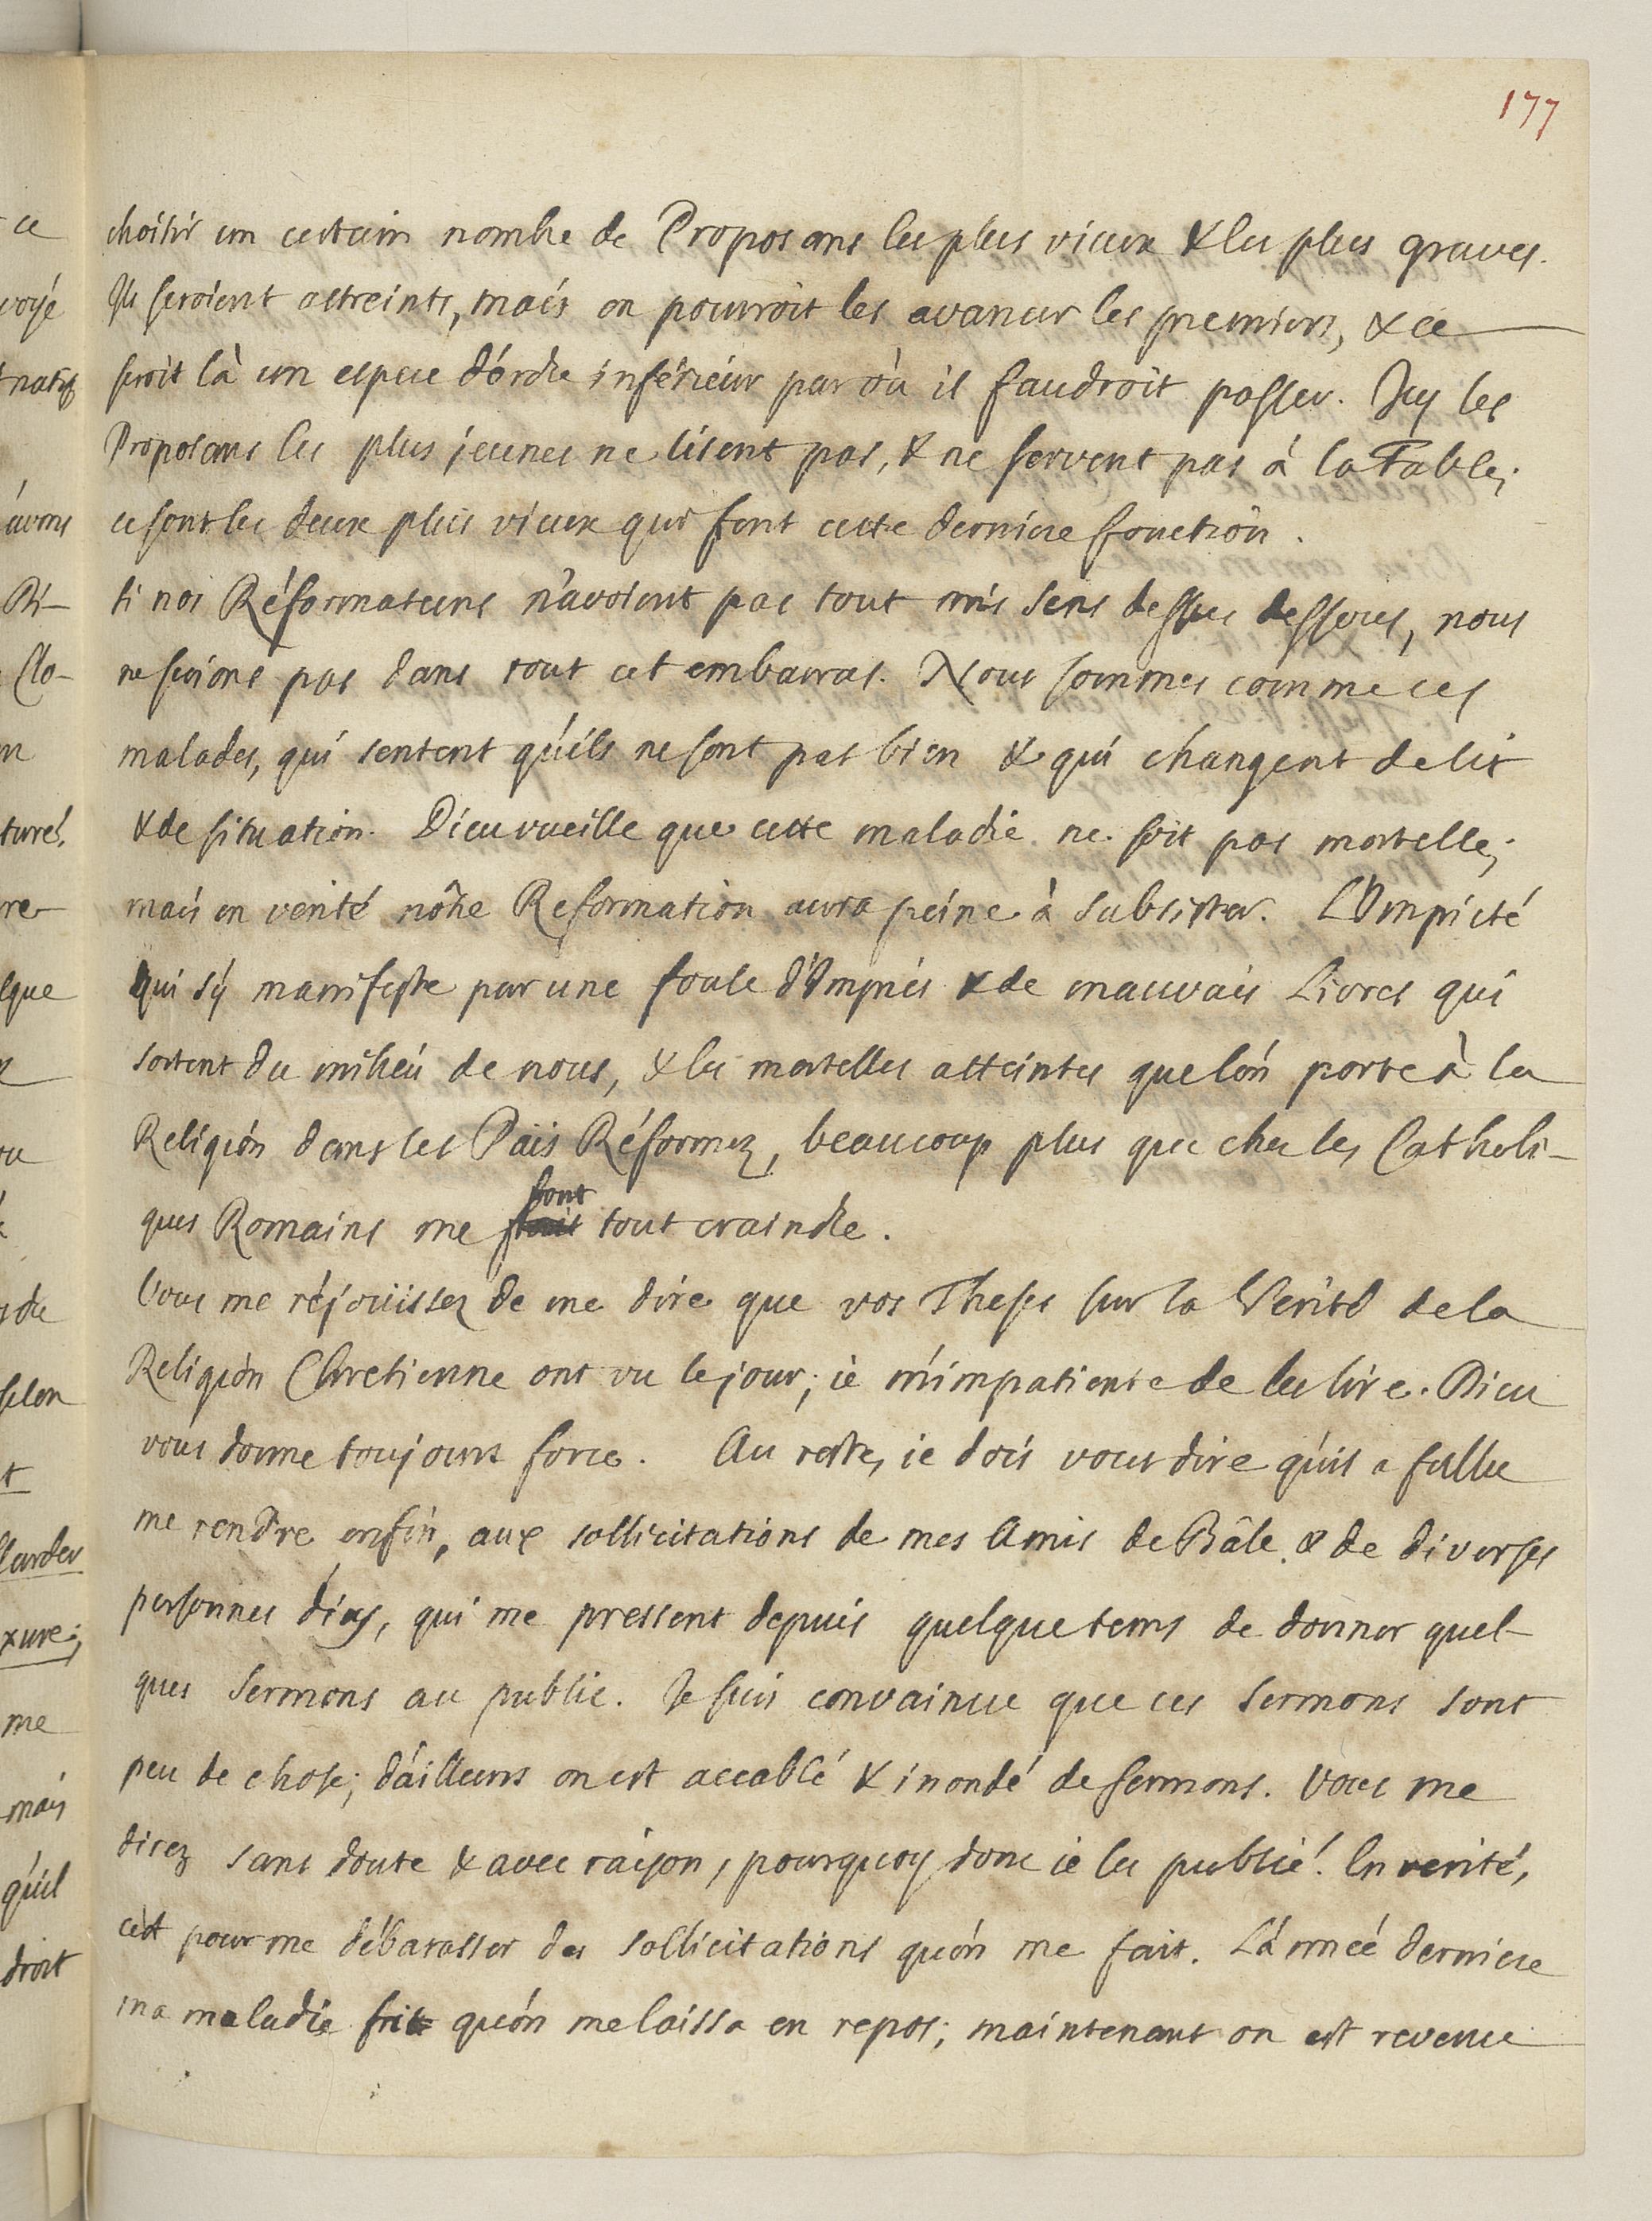 177
choisir un certain nombre de Proposans les plus vieux & les plus graves.
Ils seroient astreints, mais on pourroit les avancer les premiers, & ce
seroit là un espece d'ordre inférieur par où il faudroit passer. Icy les
Proposans les plus jeunes ne lisent pas, & ne servent pas à la Table;
ce sont les deux plus vieux qui font cette derniere fonction.
si nos Réformateurs n'avoient pas tout mis sens dessus dessous, nous
ne serions pas dans tout cet embarras. Nous sommes comme ces
malades, qui sentent qu'ils ne sont pas bien & qui changent de lit
& de situation. Dieu vueille que cette maladie ne soit pas mortelle;
mais en verité nôtre Reformation aura peine à subsister. L'Impieté
qui s'y manifeste par une foule d'Impies & de mauvais Livres qui
sortent du milieu de nous, & les mortelles atteintes que l'on porte à la
Religion dans les Païs Réformez, beaucoup plus que chez les Catholi-
ques Romains me font tout craindre.
Vous me réjouissez de me dire que vos Theses sur la Verité de la
Religion Chretienne ont vu le jour; ie m'impatiente de les lire. Dieu
vous donne toujours force. Au reste, ie dois vous dire qu'il a fallu
me rendre enfin, aux sollicitations de mes Amis de Bâle & de diverses
personnes d'icy, qui me pressent depuis quelque tems de donner quel-
ques Sermons au public. Je suis convaincu que ces sermons sont
peu de chose; d'ailleurs on est accablé & inondé de sermons. Vous me
direz sans doute & avec raison, pourquoy donc ie les publie! En verité,
c'est pour me débarasser des sollicitations qu'on me fait. L'année derniere
ma maladie fit qu'on me laissa en repos; maintenant on est revenu
ce
voyé
avons
Ri-
Clo-
re-
lque
selon
xure;
me
mais
qu'il
droit